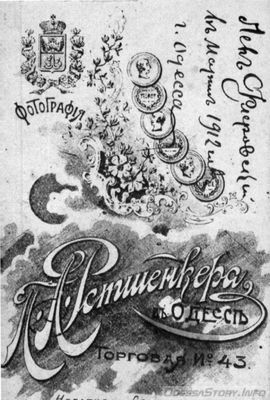 Фотографія
въ Мартѣ 1912
г. Одесса
А. Ротшенкера
въ Одессѣ
Торговая № 43.
OdessaStory.Info